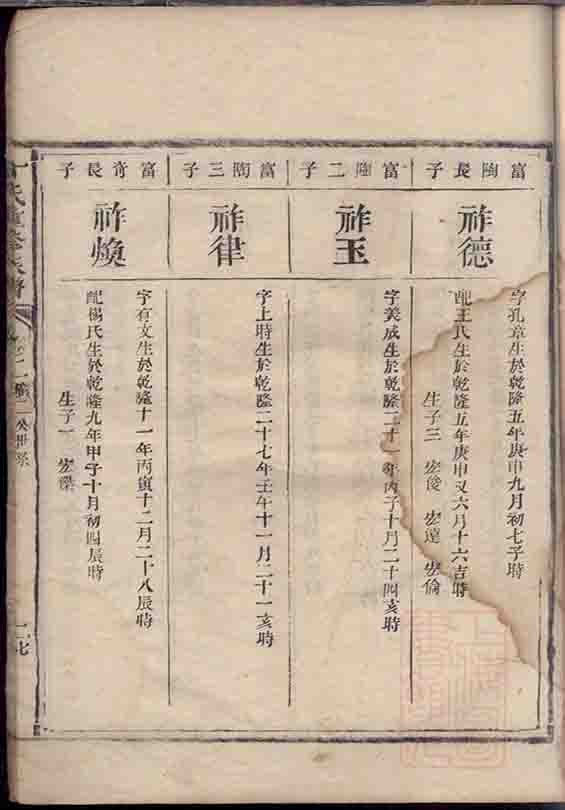 富陶長子
祚德
字孔章生於乾隆五年庚申九月初七子時
配王氏生於乾隆五年庚申又六月十六吉時
生子三 宏俊 宏達 宏倫
富陶二子
祚玉
字美成生於乾隆二十一年丙子十月二十四亥時
富陶三子
祚律
字上時生於乾隆二十七年壬午十一月二十一亥時
富奇長子
祚煥
字有文生於乾隆十一年丙寅十二月二十八辰時
配楊氏生於乾隆九年甲子十月初四辰時
生子一 宏傑
氏重修族譜
二公世系